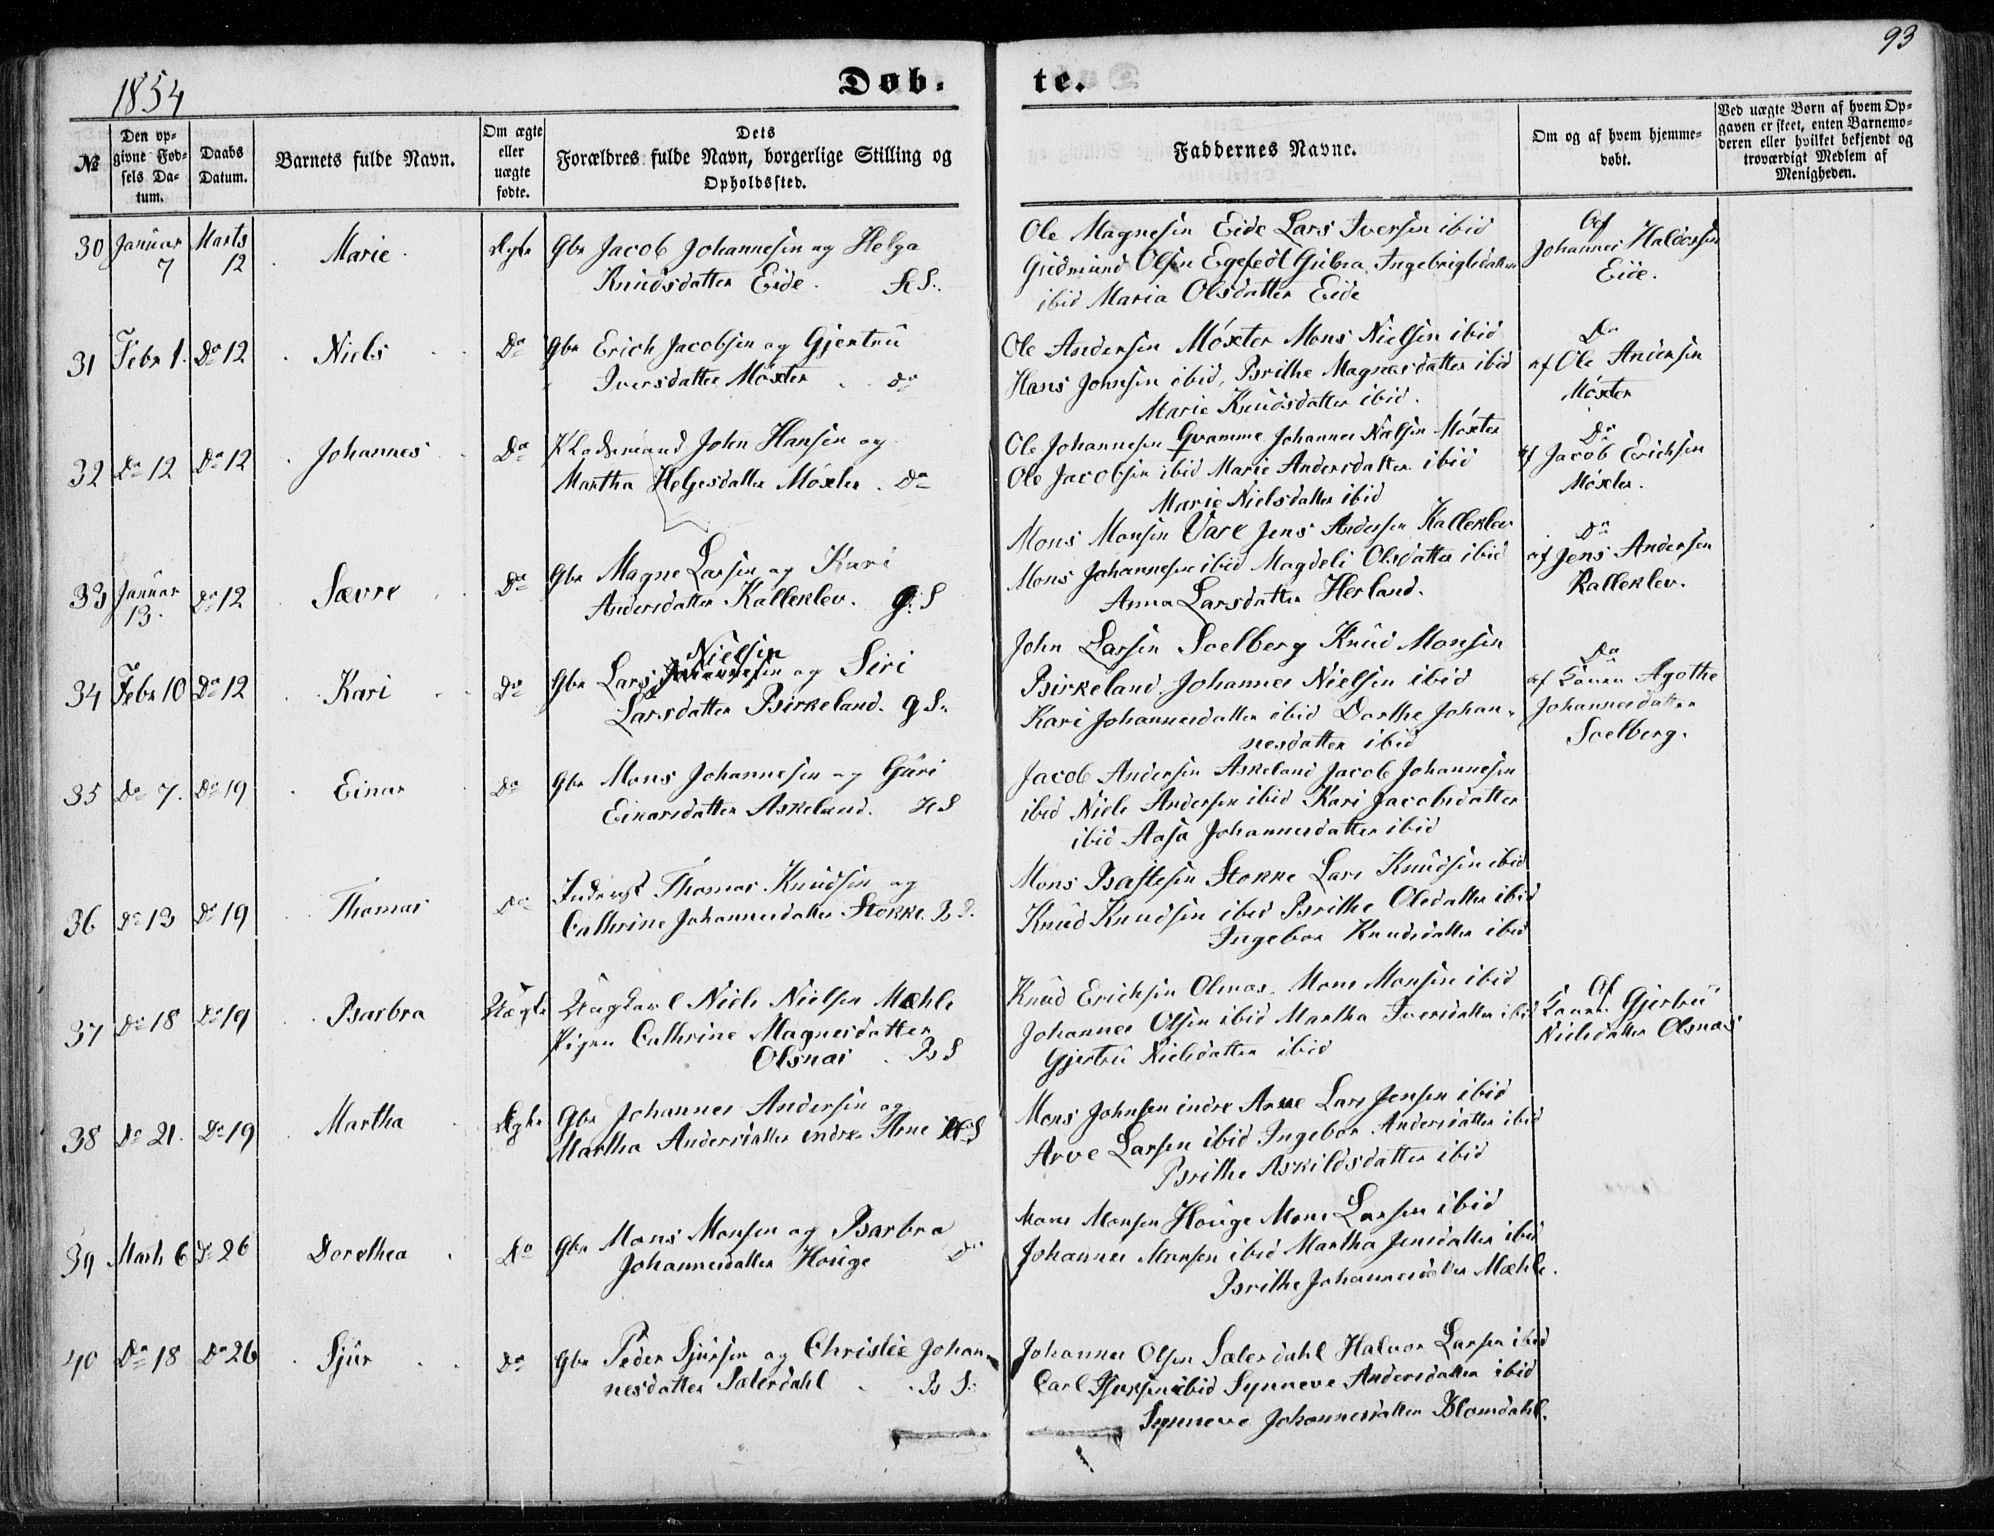 93
1854
Døb. te.
№
Den op-
givne Fød-
sels Da-
tum.
Daabs
Datum.
Barnets fulde Navn.
Om ægte
eller
uægte
fødte.
Dets
Forældres fulde Navn, borgerlige Stilling og
Opholdssted.
Faddernes Navne.
Om og af hvem hjemme-
døbt.
Ved uægte Børn af hvem Op-
gaven er skeet, enten Barnemo-
deren eller hvilket bekjendt og
troværdigt Medlem af
Menigheden.
30 Januar 7 Marts 12 Marie Ægte
Gbr Jacob Johannesen og Helga
Knudsdatter Eide.
Ole Magnesen Eide Lars Iversen ibid
Gudmund Olsen Ingebrigtsdatter
ibid Maria Olsdatter Eide
Johannes Haldorsen
Eide.
31 Febr 1. Do 12 Niels Do
Gbr Erich Jacobsen og Gjertru
Iversdatter Møxter do
Ole Andersen Møxter Mons Nielsen ibid
Hans Johnsen ibid, Brithe Magnesdatter ibid
Marie Knudsdatter ibid.
Do
af Ole Andersen
Møxter
32 Do 12 Do 12 Johannes Do
John Hansen og
Martha Helgesdatter Møxter. Do
Ole Johannesen Qvamme Johannes Nielsen Møxter
Ole Jacobsen ibid Marie Andersdatter ibid
Marie Nielsdatter ibid
Do
af Jacob Erichsen
Møxter.
33 Januar 13. Do 12 Sævre Do
Gbr Magne Larsen og Kari
Andersdatter Kalleklev. G. S
Mons Monsen Vare Jens Andersen Kalleklev
Mons Johannesen ibid Magdeli Olsdatter ibid
Anna Larsdatter Herland.
Do
af Jens Andersen
Kalleklev.
34 Febr 10 Do 12 Kari Do
Nielsen
Gbr Lars Johannesen og Siri
Larsdatter Birkeland. G S.
John Larsen Soelberg Knud Monsen
Birkeland. Johannes Nielsen ibid
Kari Johannesdatter ibid Dorthe Johan-
nesdatter ibid
Do
af Agothe
Johannesdatter
Soelberg.
35 Do 7. Do 19 Einar Do
Gbr Mons Johannesen og Guri
Einarsdatter Askeland. H S
Jacob Andersen Askeland Jacob Johannesen
ibid Niels Andersen ibid Kari Jacobsdatter
ibid Aasa Johannesdatter ibid
36 Do 13 Do 19 Thomas Do
Inderst Thomas Knudsen og
Cathrine Johannesdatter Stokke. B S.
Mons Stokke Lars Knudsen ibid
Knud Knudsen ibid Brithe Olsdatter ibid
Ingebor Knudsdatter ibid
37 Do 18 Do 19 Barbra Uægte
Ungkarl Niels Nielsen Mæhle
Pigen Cathrine Magnesdatter
Olsnæs B S
Knud Erichsen Olsnæs. Mons Monsen ibid
Johannes Olsen ibid Martha Iversdatter ibid
Gjertru Nielsdatter ibid
Af
Gjertru
Nielsdatter Olsnæs
38 Do 21. Do 19 Martha Ægte
Gbr Johannes Andersen og
Martha Andersdatter indre Arne H S
Mons Johnsen indre Arne Lars Jensen ibid
Arve Larsen ibid Ingebor Andersdatter ibid
Brithe Askildsdatter ibid
39 Marts 6 Do 26 Dorethea Do
Gbr Mons Monsen og Barbra
Johannesdatter Houge Do
Mons Monsen Houge Mons Larsen ibid
Johannes Monsen ibid Martha Jensdatter ibid
Brithe Johannesdatter Mæhle.
40 Do 18 Do 26 Sjur Do
Gbr Peder Sjursen og Christie Johan-
nesdatter Sælerdahl B S.
Johannes Olsen Sælerdahl Halvor Larsen ibid
Carl ibid Synneve Andersdatter ibid
Synneve Johannesdatter Blomdahl.